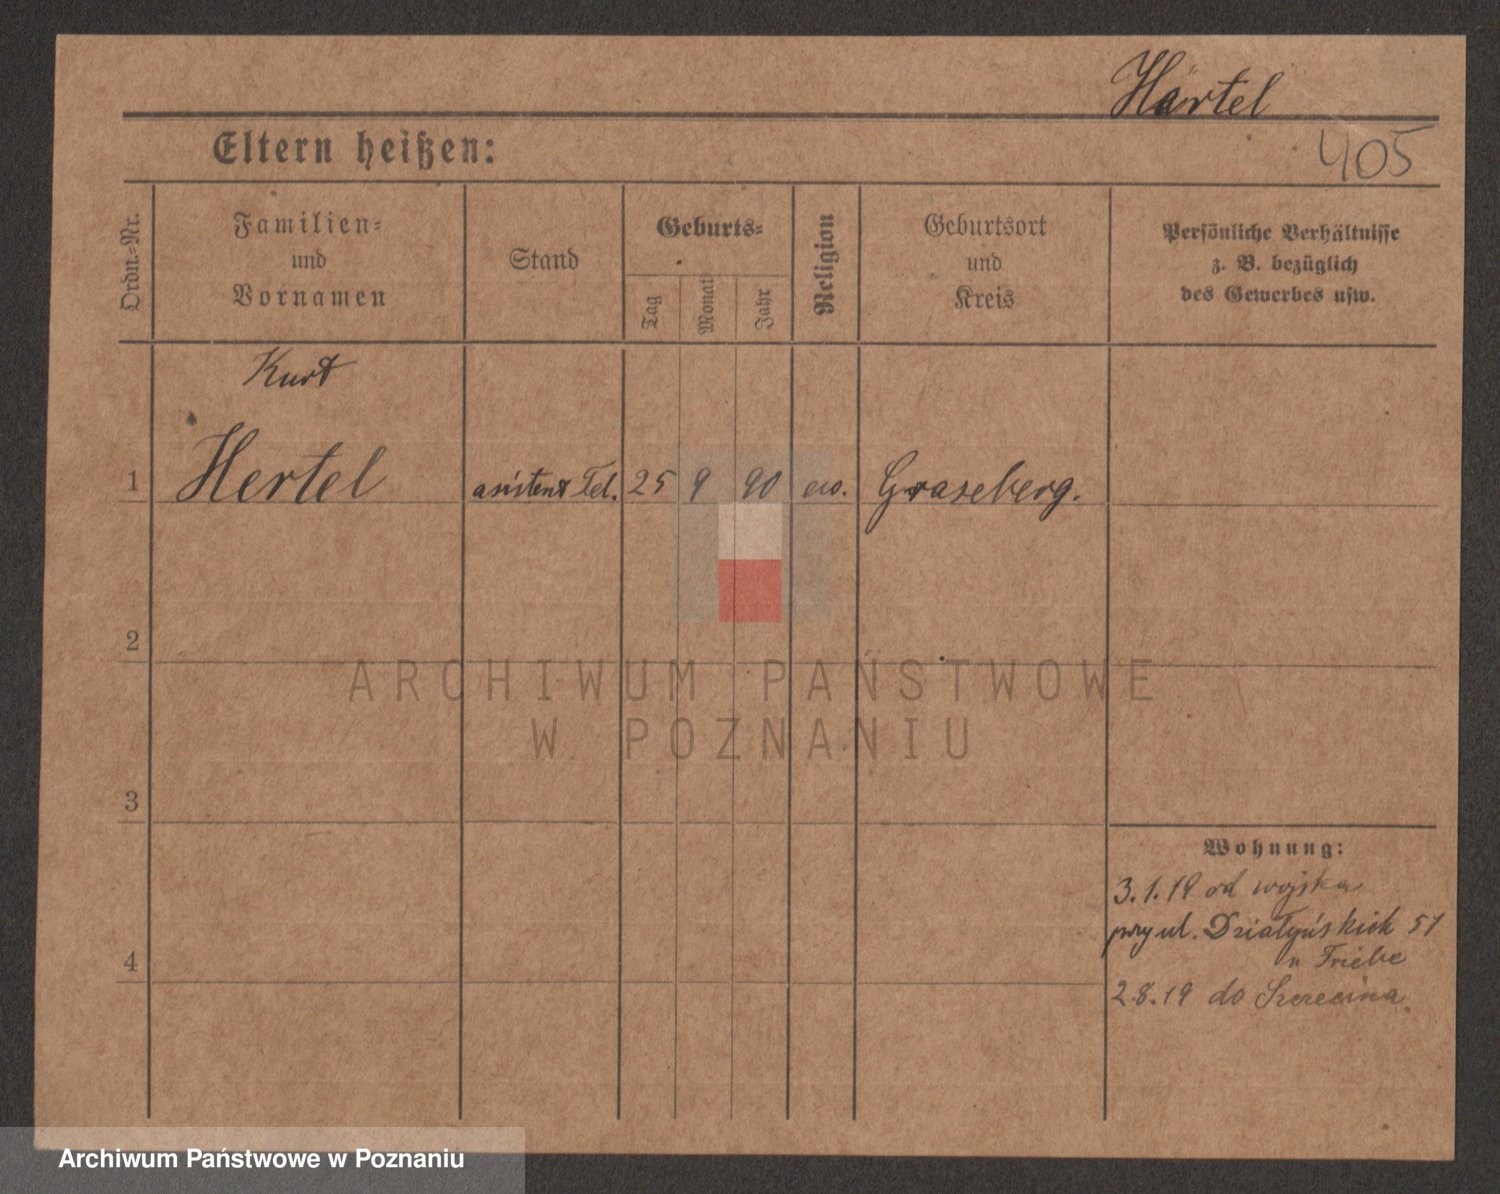 Härtel
405
Eltern heißen:
Ordn.-Nr.
Familien- und Vornamen
Stand
Geburts-
Tag
Monat
Jahr
Religion
Geburtsort und Kreis
Persönliche Verhältnisse
z. B. bezüglich
des Gewerbes usw.
Kurt
1 Hertel asistent Tel. 25 9 90 ew. Graseberg.
2
ARCHIWUM PAŃSTWOWE
W POZNANIU
3
Wohnung:
3.1.19 od wojska
przy ul. Działyńskich 51
u Friebe
4
2.8.19 do Szczecina.
Archiwum Państwowe w Poznaniu